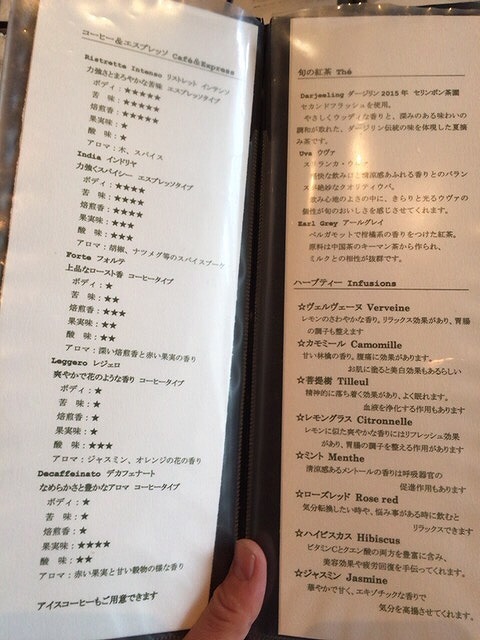 コーヒー＆エスプレッソ Café＆Express
Ristretto Intenso リストレット インテンソ
力強さとまろやかな苦味 エスプレッソタイプ
ボディ：★★★★★
苦 味：★★★★★
焙煎香：★★★★★
果実味：★
酸 味：★
アロマ：木、スパイス
India インドリヤ
力強くスパイシー エスプレッソタイプ
ボディ：★★★★
苦 味：★★★★
焙煎香：★★★★
果実味：★★★
酸 味：★★★
アロマ：胡椒、ナツメグ等のスパイスブーケ
Forte フォルテ
上品なロースト香 コーヒータイプ
ボディ：★
苦 味：★★
焙煎香：★★★
果実味：★★
酸 味：★★
アロマ：深い焙煎香と赤い果実の香り
Leggero レジェロ
爽やかで花のような香り コーヒータイプ
ボディ：★
苦 味：★
焙煎香：★
果実味：★
酸 味：★★★
アロマ：ジャスミン、オレンジの花の香り
Decaffeinato デカフェナート
なめらかさと豊かなアロマ コーヒータイプ
ボディ：★
苦 味：★
焙煎香：★
果実味：★★★★
酸 味：★★
アロマ：赤い果実と甘い穀物の様な香り
アイスコーヒーもご用意できます
旬の紅茶 Thé
Darjeeling ダージリン 2015年 セリンボン茶園
セカンドフラッシュを使用。
やさしくウッディな香りと、深みのある味わいの
調和が取れた、ダージリン伝統の味を体現した夏摘
み茶です。
Uva ウヴァ
スリランカ・ウヴァ
爽快な飲み口と清涼感あふれる香りとのバラン
スが絶妙なクオリティウバ。
飲み心地のよさの中に、きらりと光るウヴァの
個性が旬のおいしさを感じさせてくれます。
Earl Grey アールグレイ
ベルガモットで柑橘系の香りをつけた紅茶。
原料は中国茶のキーマン茶から作られ、
ミルクとの相性が抜群です。
ハーブティー Infusions
☆ヴェルヴェーヌ Verveine
レモンのさわやかな香り、リラックス効果があり、胃腸
の調子も整えます
☆カモミール Camomille
甘い林檎の香り。腹痛に効果があります。
お肌に塗ると美白効果もあるらしい
☆菩提樹 Tilleul
精神的に落ち着く効果があり、よく眠れます。
血液を浄化する作用もあります
☆レモングラス Citronnelle
レモンに似た爽やかな香りにはリフレッシュ効果
があり、胃腸の調子を整える作用があります
☆ミント Menthe
清涼感あるメントールの香りは呼吸器官の
促進作用もあります
☆ローズレッド Rose red
気分転換したい時や、悩み事がある時に飲むと
リラックスできます
☆ハイビスカス Hibiscus
ビタミンCとクエン酸の両方を豊富に含み、
美容効果や疲労回復を手伝ってくれます。
☆ジャスミン Jasmine
華やかで甘く、エキゾチックな香りで
気分を高揚させてくれます。